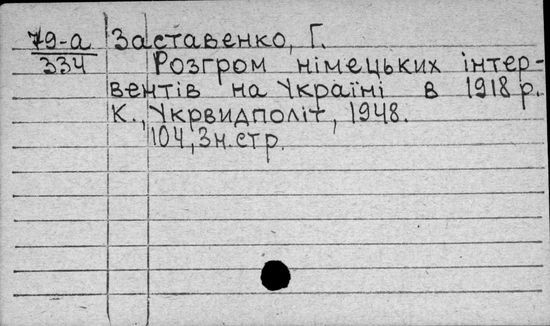 79-а Заставенко, Г.
334 Розгром німецьких інтер-
вентів на Україні в 1918 р.
К., Укрвидполіт, 1948.
104, 3 н. стр.